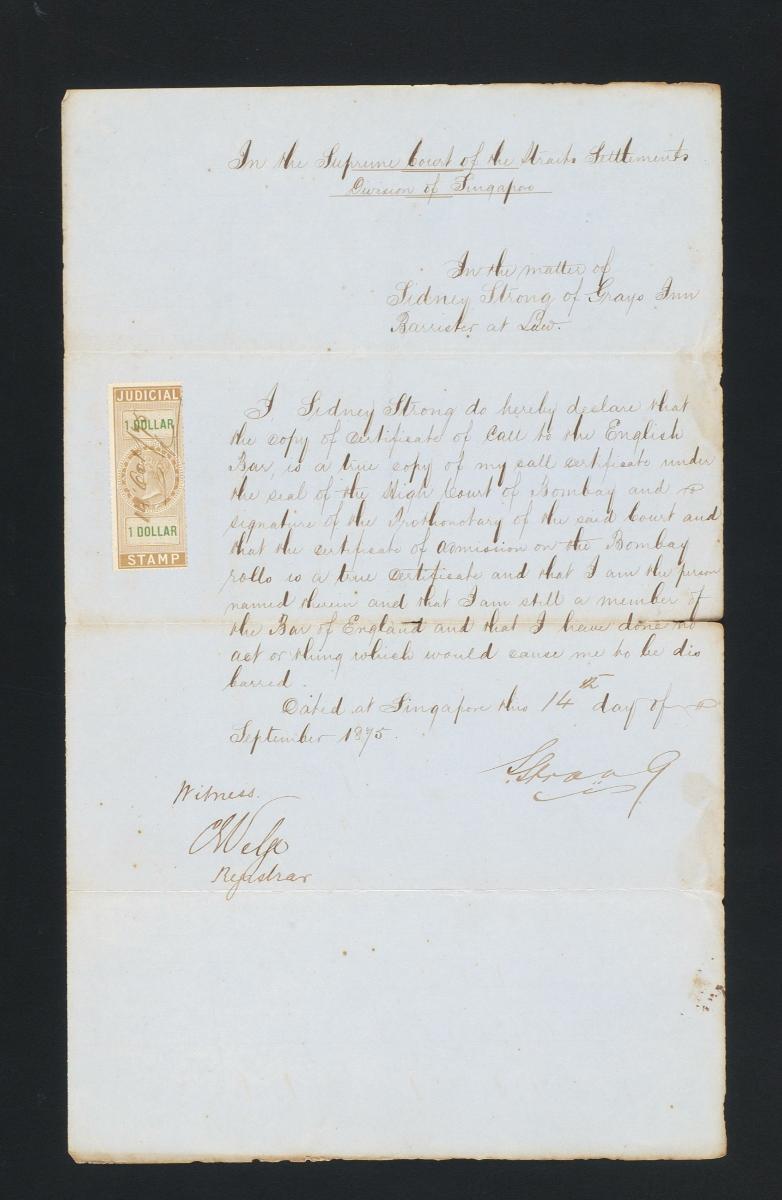 In the Supreme Court of the Straits Settlements
Division of Singapore
In the matter of
Sidney Strong of Grays Inn
Barrister at Law.
JUDICIAL
1 DOLLAR
1 DOLLAR
STAMP
I Sidney Strong do hereby declare that
the copy of certificate of call to the English
Bar, is a true copy of my call certificate under
the seal of the High Court of Bombay and
signature of the Prothonotary of the said Court and
that the certificate of admission on the Bombay
rolls is a true certificate and that I am the person
named therein and that I am still a member of
the Bar of England and that I have done no
act or thing which would cause me to be dis
barred.
Dated at Singapore this 14th day of
September 1875.
S Strong
Witness.
Registrar